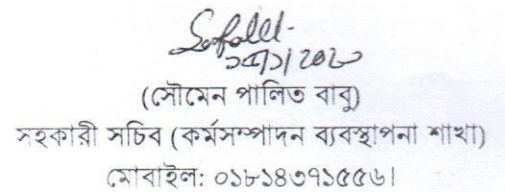 (সৌমেন পালিত বাবু)
সহকারী সচিব (কর্মসম্পাদন ব্যবস্থাপনা শাখা)
মোবাইল: ০১৮১৪৩৭১৫৫৬।